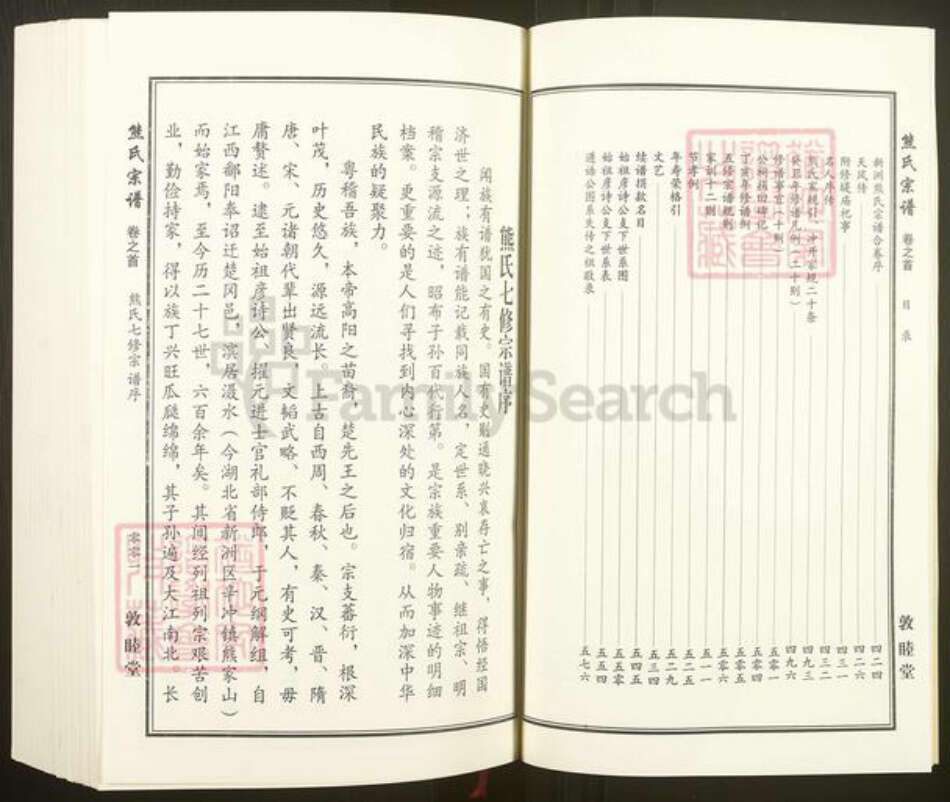 熊氏宗谱 卷之首 目录 敦睦堂
新洲熊氏宗谱合卷序 四二四
天成传 四二六
附修缇庙杞事 四三一
名人年传 四三二
熊氏家规引、冲开家规二十条 四九三
癸丑年修谱凡例(二十则) 四九六
修谱事宜(十则) 五〇一
公祠捐田碑记 五〇四
丁亥年修谱例 五〇五
五修宗谱规则 五〇
家训十二则 五一一
节孝例 五二五
年寿荣格引 五二九
文艺 五三四
续谱捐款名目 五四五
始祖彦诗公支下世系图 五五〇
始祖彦诗公支下世系表 五五四
道诰公图系失传之俶敬录 五七六
熊氏七修宗谱序
阖族有谱犹国之有史。国有史则通晓兴衰存亡之事,得悟经国
济世之理;族有谱能记载同族人名,定世系、别亲疏、继祖宗、明
稽宗支源流之迹,昭布子孙百代行第。是宗族重要人物事迹的明细
档案。更重要的是人们寻找到内心深处的文化归宿。从而加深中华
民族的疑聚力。
粤稽吾族,本帝高阳之苗裔,楚先王之后也。宗支蕃衍,根深
叶茂,历史悠久,源远流长。上古自西周、春秋、秦、汉、晋、隋
唐、宋、元诸朝代辈出贤良,文韬武略、不贬其人,有史可考,毋
庸赘述。逮至始祖彦诗公,擢元进士官礼部侍郎,于元纲解组,自
江西鄱阳奉诏迁楚冈邑,滨居滠水(今湖北省新洲区辛冲镇熊家山)
而始家焉,至今历二十七世,六百余年矣。其间经列祖列宗艰苦创
业,勤俭持家,得以族丁兴旺瓜瓞绵绵,其子孙遍及大江南北。长
熊氏宗谱 卷之首 熊氏七修宗谱序 零零一 敦睦堂
FamilySearch